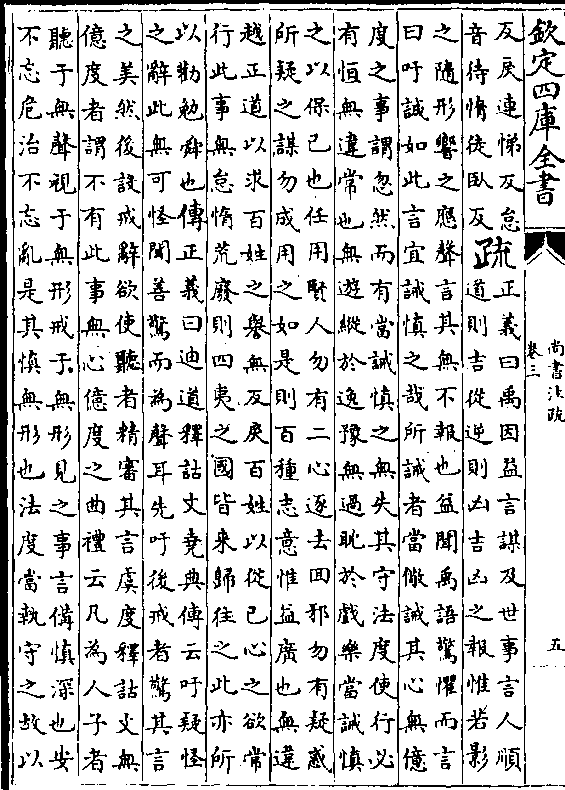 欽定四庫全書
尚書注疏
卷三
五
反戾連悌反怠
音待惰徒臥反
疏
正義曰禹因益言謀及世事言人順
道則吉從逆則凶吉凶之報惟若影
之隨形響之應聲言其無不報也益聞禹語驚懼而言
曰吁誡如此言宜誡慎之哉所誡者當儆誡其心無億
度之事謂忽然而有當誡慎之無失其守法度使行必
有恒無違常也無遊縱於逸豫無過耽於戲樂當誡慎
之以保己也任用賢人勿有二心逐去回邪勿有疑惑
所疑之謀勿成用之如是則百種志意惟益廣也無違
越正道以求百姓之譽無反戾百姓以從己心之欲常
行此事無怠惰荒廢則四夷之國皆來歸往之此亦所
以勸勉舜也傳正義曰迪道釋詁文堯典傳云吁疑怪
之辭此無可怪聞善驚而為聲耳先吁後戒者驚其言
之美然後設戒辭欲使聽者精審其言虞度釋詁文無
億度者謂不有此事無心億度之曲禮云凡為人子者
聽于無聲視于無形戒于無形見之事言備慎深也安
不忘危治不忘亂是其慎無形也法度當執守之故以